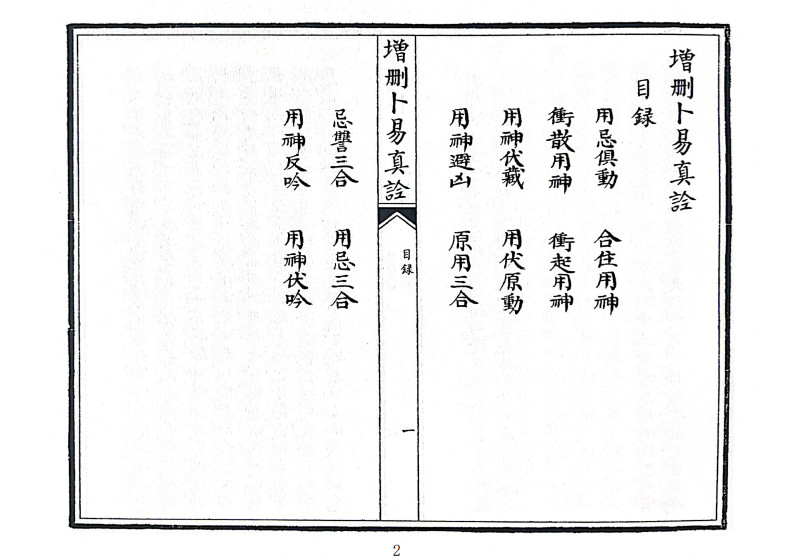 增刪卜易真詮
目録
用忌俱動 合住用神
衝散用神 衝起用神
用神伏藏 用伏原動
用神避凶 原用三合
增刪卜易真詮
目録
一
忌讐三合 用忌三合
用神反吟 用神伏吟
2